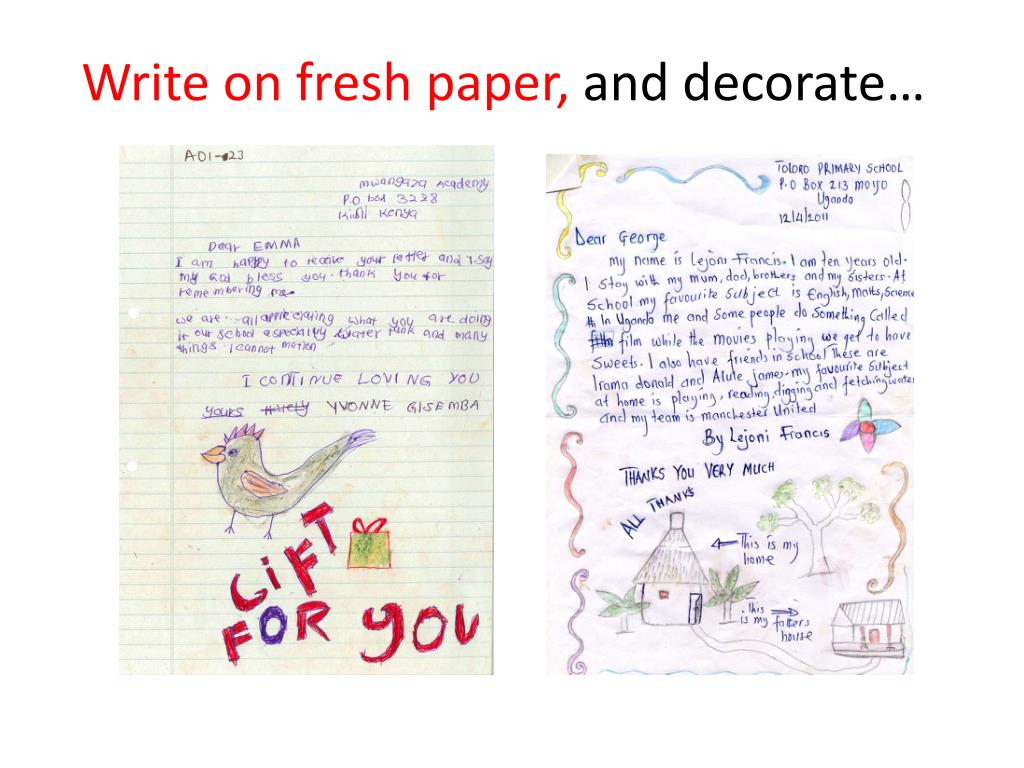 Write on fresh paper, and decorate…
A01-23
mwangaza Academy
P.O box 3228
Kenya
Dear EMMA
I am happy to receive your letter and I say
my God bless you. thank you for
remembering me
we are all appreciating what you are doing
in our school especially water tank and many
things I cannot metion
I CONTINUE LOVING YOU
yours YVONNE GISEMBA
GIFT
FOR YOU
TOLORO PRIMARY SCHOOL
P.O BOX 213 MOYO
Uganda
12/4/2011
Dear George
my name is Lejoni Francis. I am ten years old.
I stay with my mum, dad, brothers and my sisters. At
School my favourite subject is English, Maths, Science
In Uganda me and some people do something called
film while the movies playing we get to have
Sweets. I also have friends in School These are
Irama donald and Alule james. my favourite subject
at home is playing, reading, digging and fetching water
and my team is manchester United
By Lejoni Francis
THANKS YOU VERY MUCH
ALL THANKS
This is my
home
This
is my fathers
house